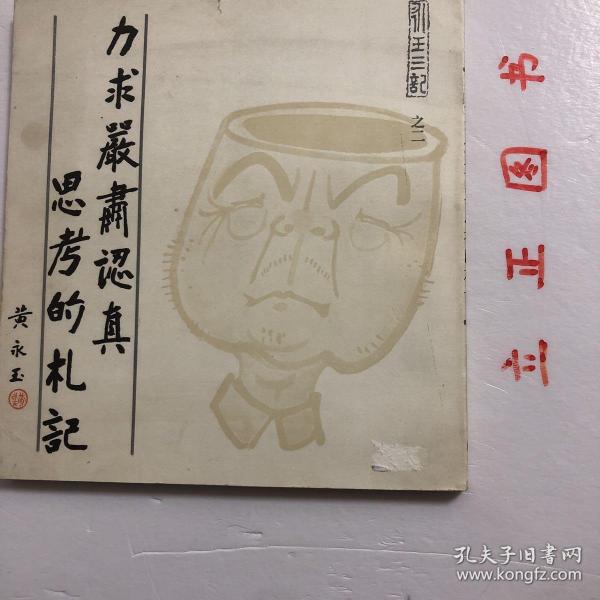 永玉三記
之二
力求嚴肅認真
思考的札記
黃永玉
书
图
正
立
孔夫子旧书网
www.kongfz.com